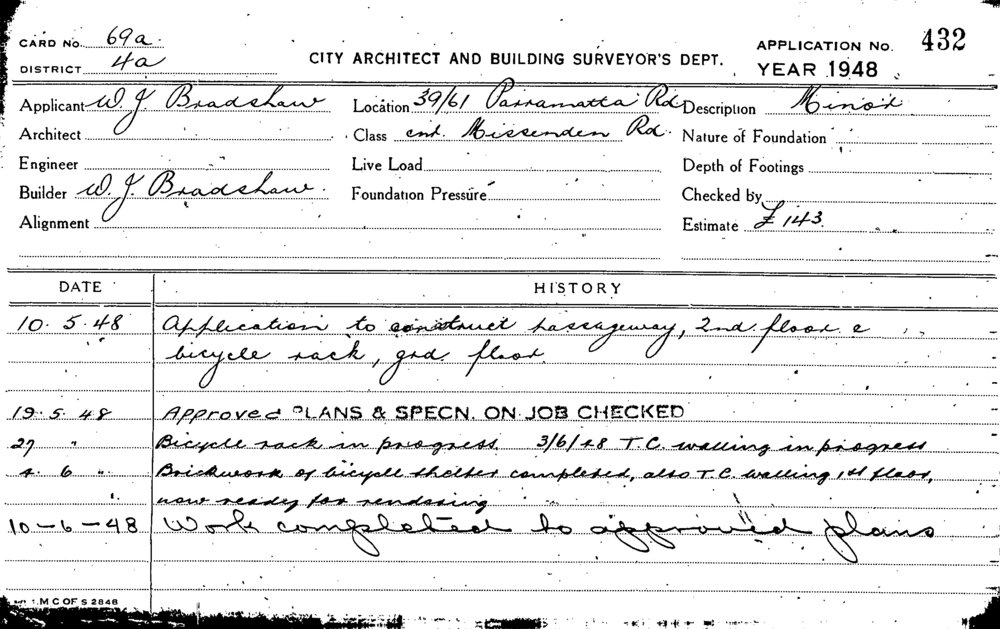 CARD No. 69a.
DISTRICT 4a
CITY ARCHITECT AND BUILDING SURVEYOR'S DEPT.
APPLICATION No. 432
YEAR 1948
Applicant W. J. Bradshaw Location 39/61 Parramatta Rd Description Minor
Architect Class cnr. Missenden Rd. Nature of Foundation
Engineer Live Load Depth of Footings
Builder W. J. Bradshaw. Foundation Pressure Checked by
Alignment Estimate £ 143.
DATE HISTORY
10. 5. 48 Application to construct passageway, 2nd. floor &
bicycle rack, grd. floor.
19. 5. 48 Approved PLANS & SPECN. ON JOB CHECKED
27 " Bicycle rack in progress. 3/6/48 T.C. walling in progress
4. 6 " Brickwork of bicycle shelter completed, also T.C. walling 1st floor,
now ready for rendering
10-6-48 Work completed to approved plans
M C OF S 2848